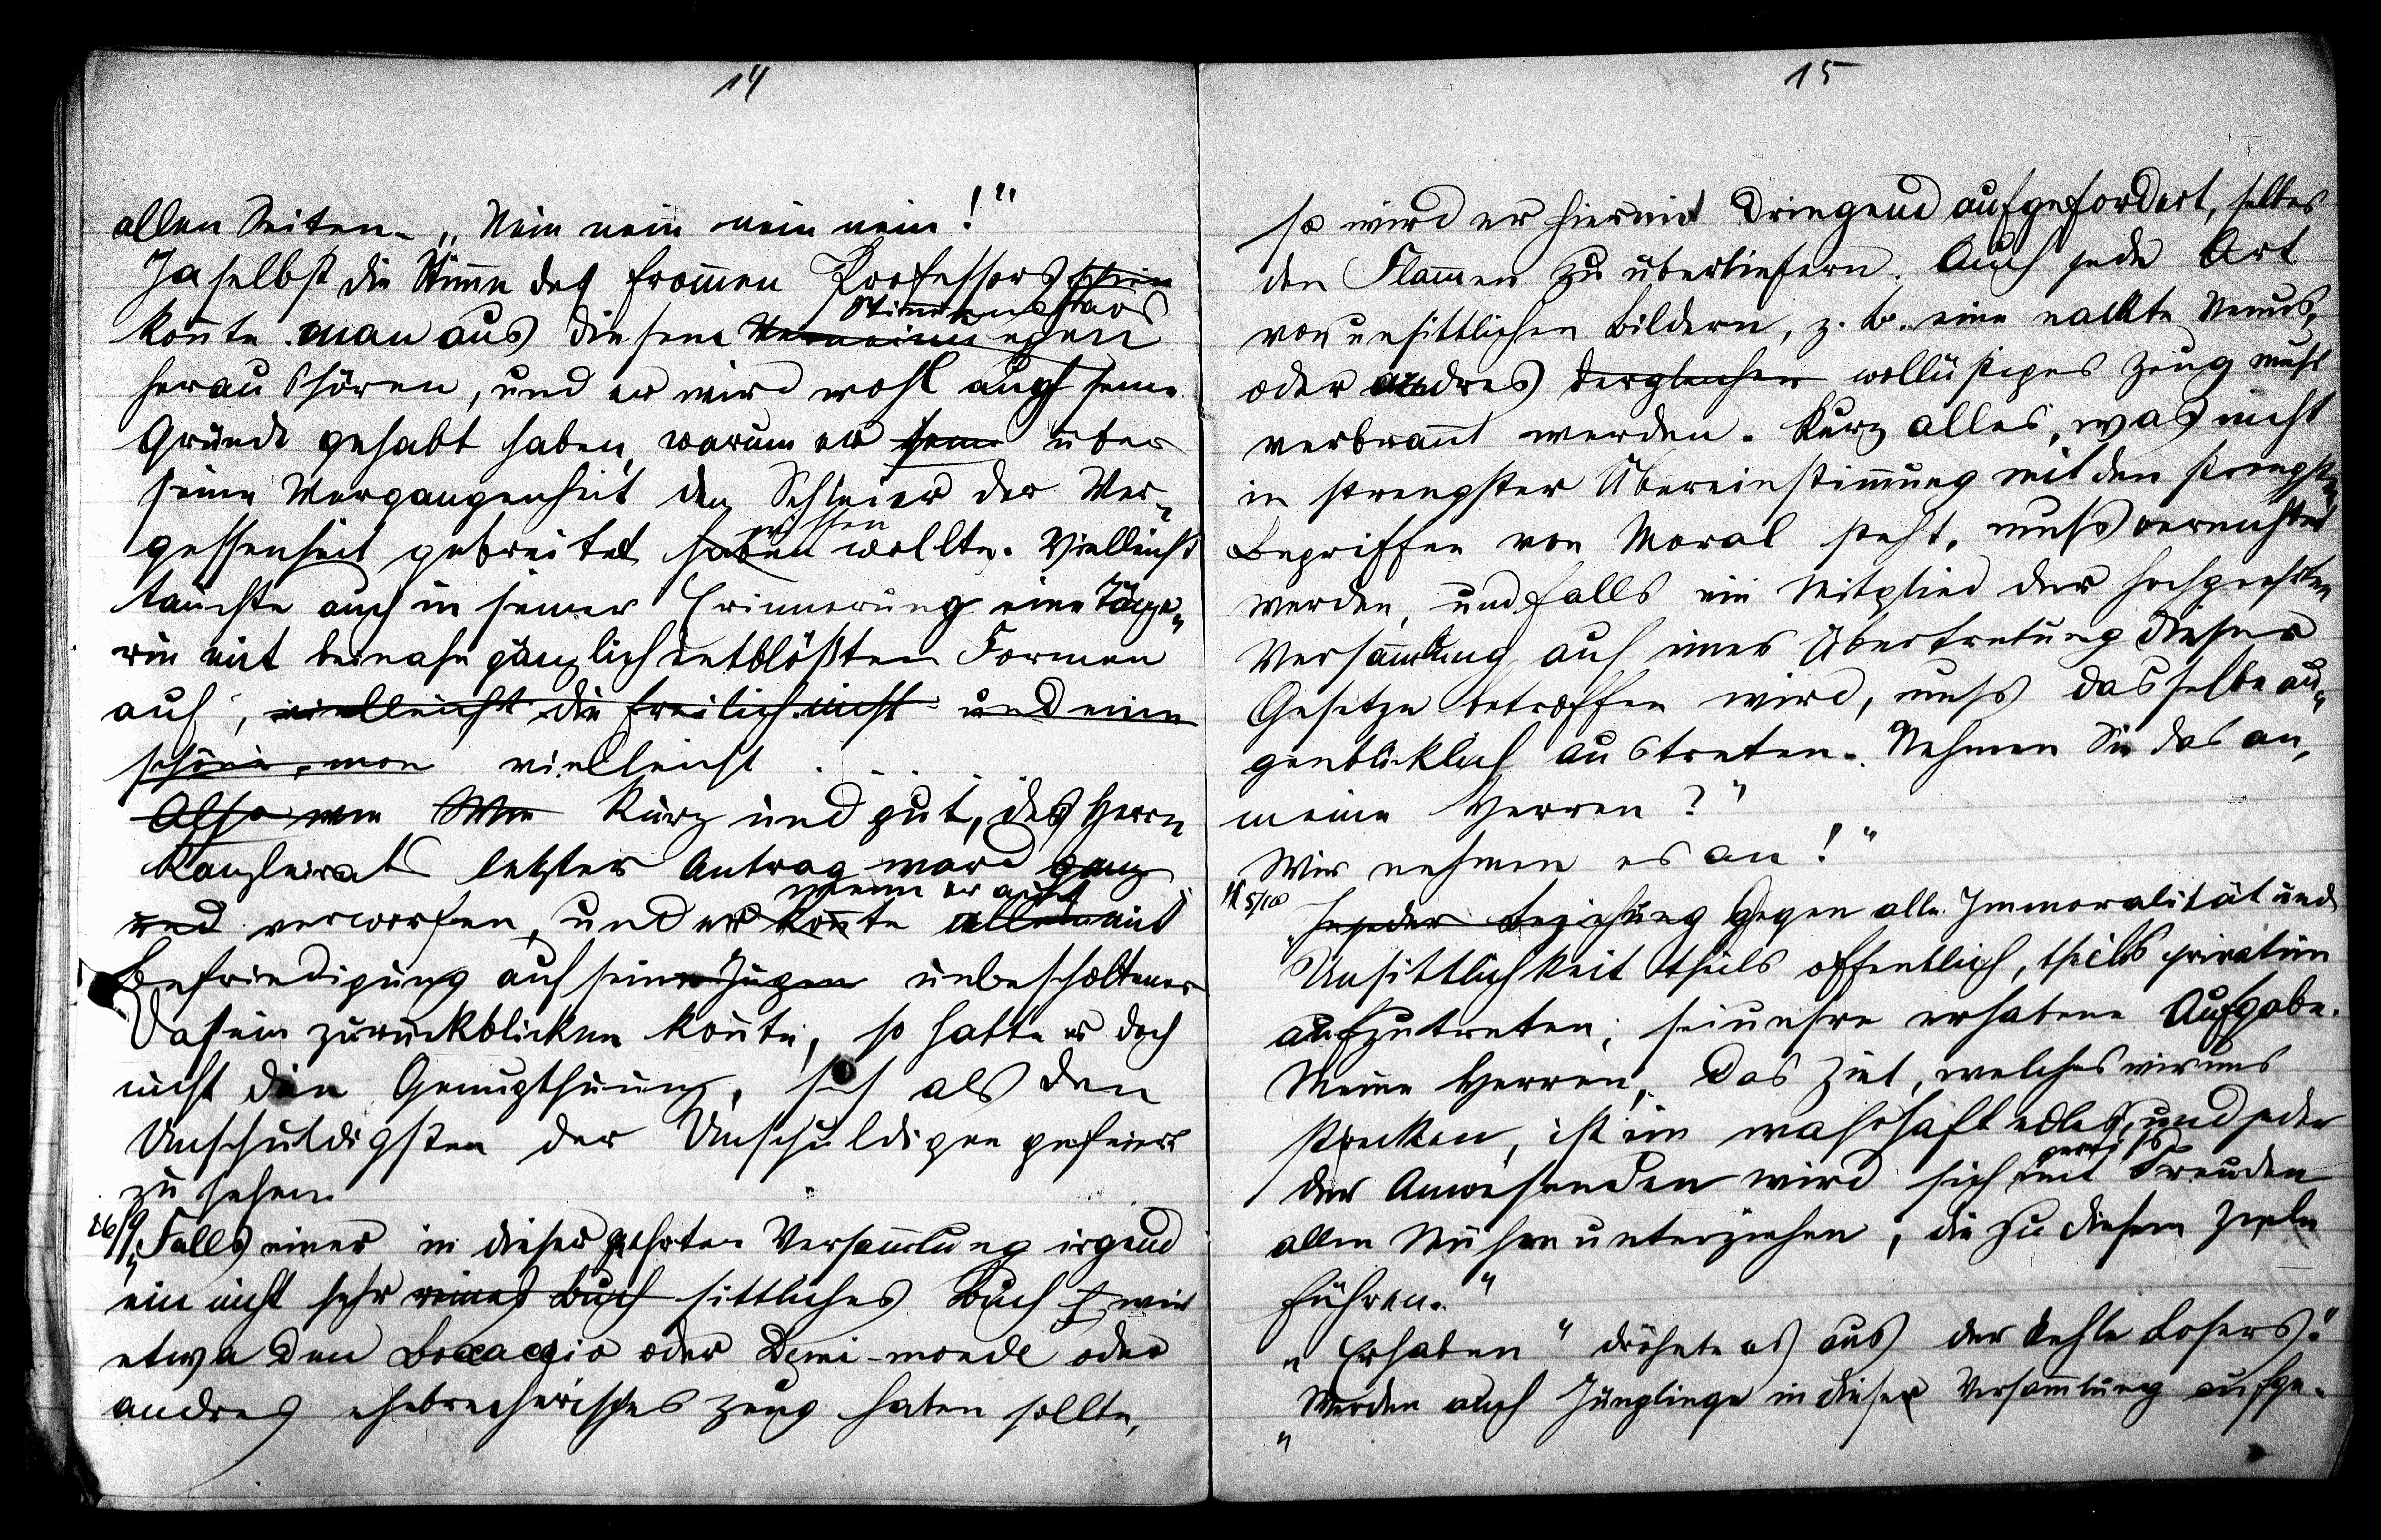 14
allen Seiten. „Nein nein nein nein!"
Ja selbst die Stimme des from̅en Professors schien
Stimmenchaos
kon̅te man aus diesem Verneinungen
heraushören, und er wird wohl auch seine
Gründe gehabt haben, warum er sein über
seine Vergangenheit den Schleier der Ver-
wissen
gessenheit gebreitet haben wollte. Vielleicht
tauchte auch in seiner Erinnerung eine Tänze-
rin mit beinahe gänzlich entblößten Formen
auf, vielleicht die freilich nicht und eine
schöne, von vielleicht . . . .
Also von Von Kurz und gut, des Herrn
Kanzleirats letzter Antrag ward ganz
wenn er auch
und verworfen, und er kon̅te allem mit
Befriedigung auf sein Jugen unbescholtenes
Dasein zurückblicken kon̅te, so hatte er doch
nicht die Genugthuung, sich als den
Unschuldigsten der Unschuldigen gefeiert
zu sehen.
26/9 „Falls einer in dieser geehrten Versam̅lung irgend
ein nicht sehr reines Buch sittliches Buch wie
etwa den Boccaccio oder Demi-monde oder
andres ehebrecherisches Zeug haben sollte,
15
so wird er hiermit dringend aufgefordert, selbes
den Flam̅en zu überliefern. Auch jede Art
von unsittlichen Bildern, z. B. eine nackte Venus,
oder andres dergleichen wollüstiges Zeug muss
verbran̅t werden. Kurz alles, was nicht
in strengster Übereinstim̅ung mit den strengsten
Begriffen von Moral steht, muss vernichtet
werden, und falls ein Mitglied der hochgeehrten
Versam̅lung auf einer Übertretung dieser
Gesetze betroffen wird, muss dasselbe au-
genblicklich austreten. Nehmen Sie das an,
meine Herren?"
Wir nehmen es an!"
5/10 „In jeder Beziehung Gegen alle Immoralität und
Unsittlichkeit theils öffentlich, theils privatim
aufzutreten, sei unsre erhabene Aufgabe.
Meine Herren, das Ziel, welches wir uns
stecken, ist ein wahrhaft edles, und jeder
gewiss
der Anwesenden wird sich mit Freuden
allen Mühen unterziehen, die zu diesem Ziele
führen."
„Erhaben" dröhnte es aus der Kehle Losers."
„Werden auch Jünglinge in dieser Versam̅lung aufge-